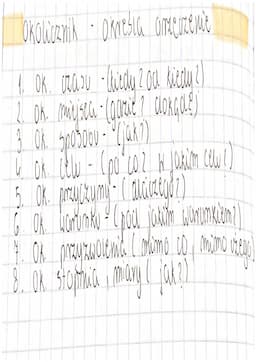 Okolicznik - określa orzeczenie
1. ok. czasu - (kiedy? od kiedy?)
2. ok. miejsca - (gdzie? dokąd?)
3. ok. sposobu - (jak?)
4. ok. celu - (po co? w jakim celu?)
5. ok. przyczyny - (dlaczego?)
6. ok. warunku (pod jakim warunkiem?)
7. ok. przyzwolenia (mimo co, mimo czego)
8. ok. stopnia, miary (jak?)